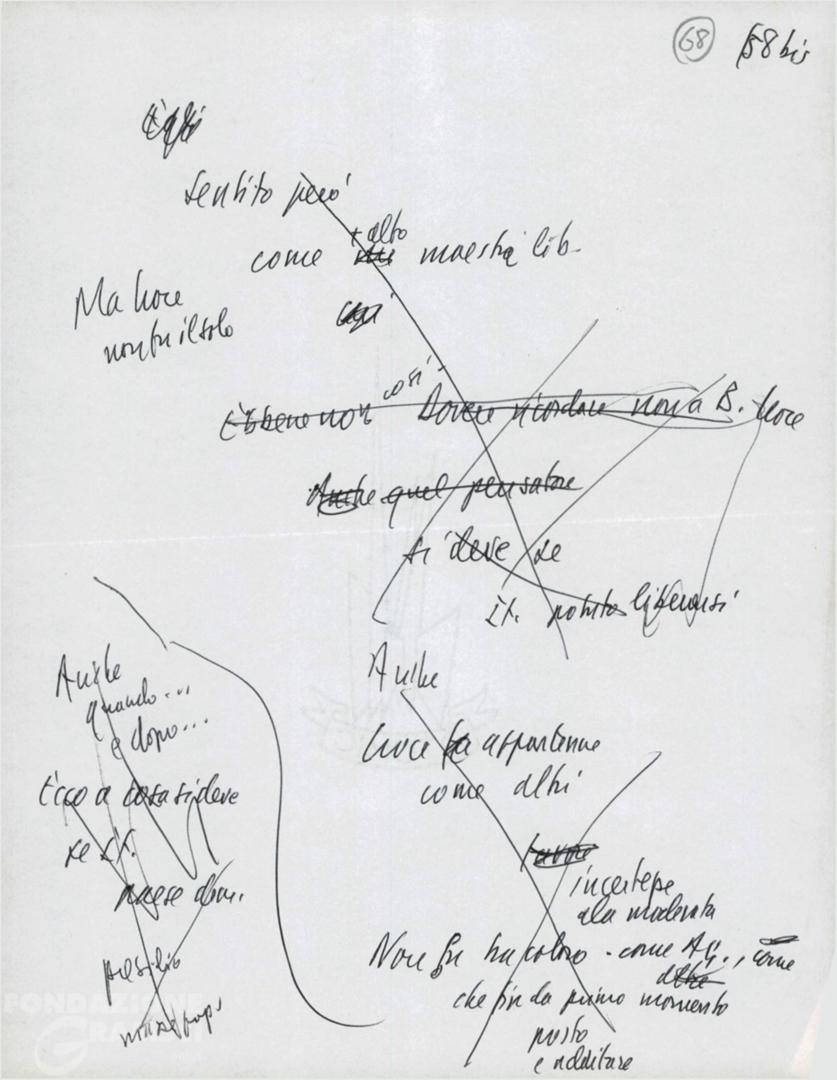 68 58 bis
sentito però
+ alto
come maestra lib.
Ma Croce
non fu il solo
così
Ebbene non Dovere ricordare non a B. Croce
Anche quel pensatore
si deve se
It. potuto liberarsi
Anche
quando...
e dopo...
Anche
Croce appartenne
come altri
Ecco a cosa si deve
se It.
paese dem.
incertezze
ala moderata
Non fu tra coloro - come AG., come
altri
che fin da primo momento
presidio
posto
e additare
FONDAZIONE
GRAMSCI